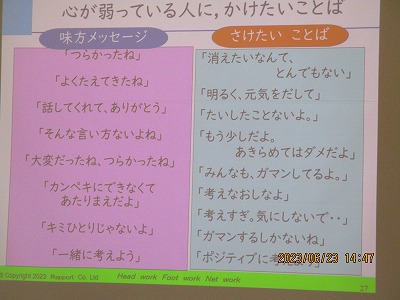 心が弱っている人に，かけたいことば
味方メッセージ
「つらかったね」
「よくたえてきたね」
「話してくれて、ありがとう」
「そんな言い方ないよね」
「大変だったね、つらかったね」
「カンペキにできなくて
あたりまえだよ」
「キミひとりじゃないよ」
「一緒に考えよう」
さけたい ことば
「消えたいなんて、
とんでもない」
「明るく、元気をだして」
「たいしたことないよ。」
「もう少しだよ。
あきらめてはダメだよ」
「みんなも、ガマンしてるよ。」
「考えなおしなよ」
「考えすぎ。気にしないで・・」
「ガマンするしかないね」
「ポジティブに考えよう」
2023/06/23 14:47
Copyright 2023 Rapport Co. Ltd
Head work Foot work Net work
27